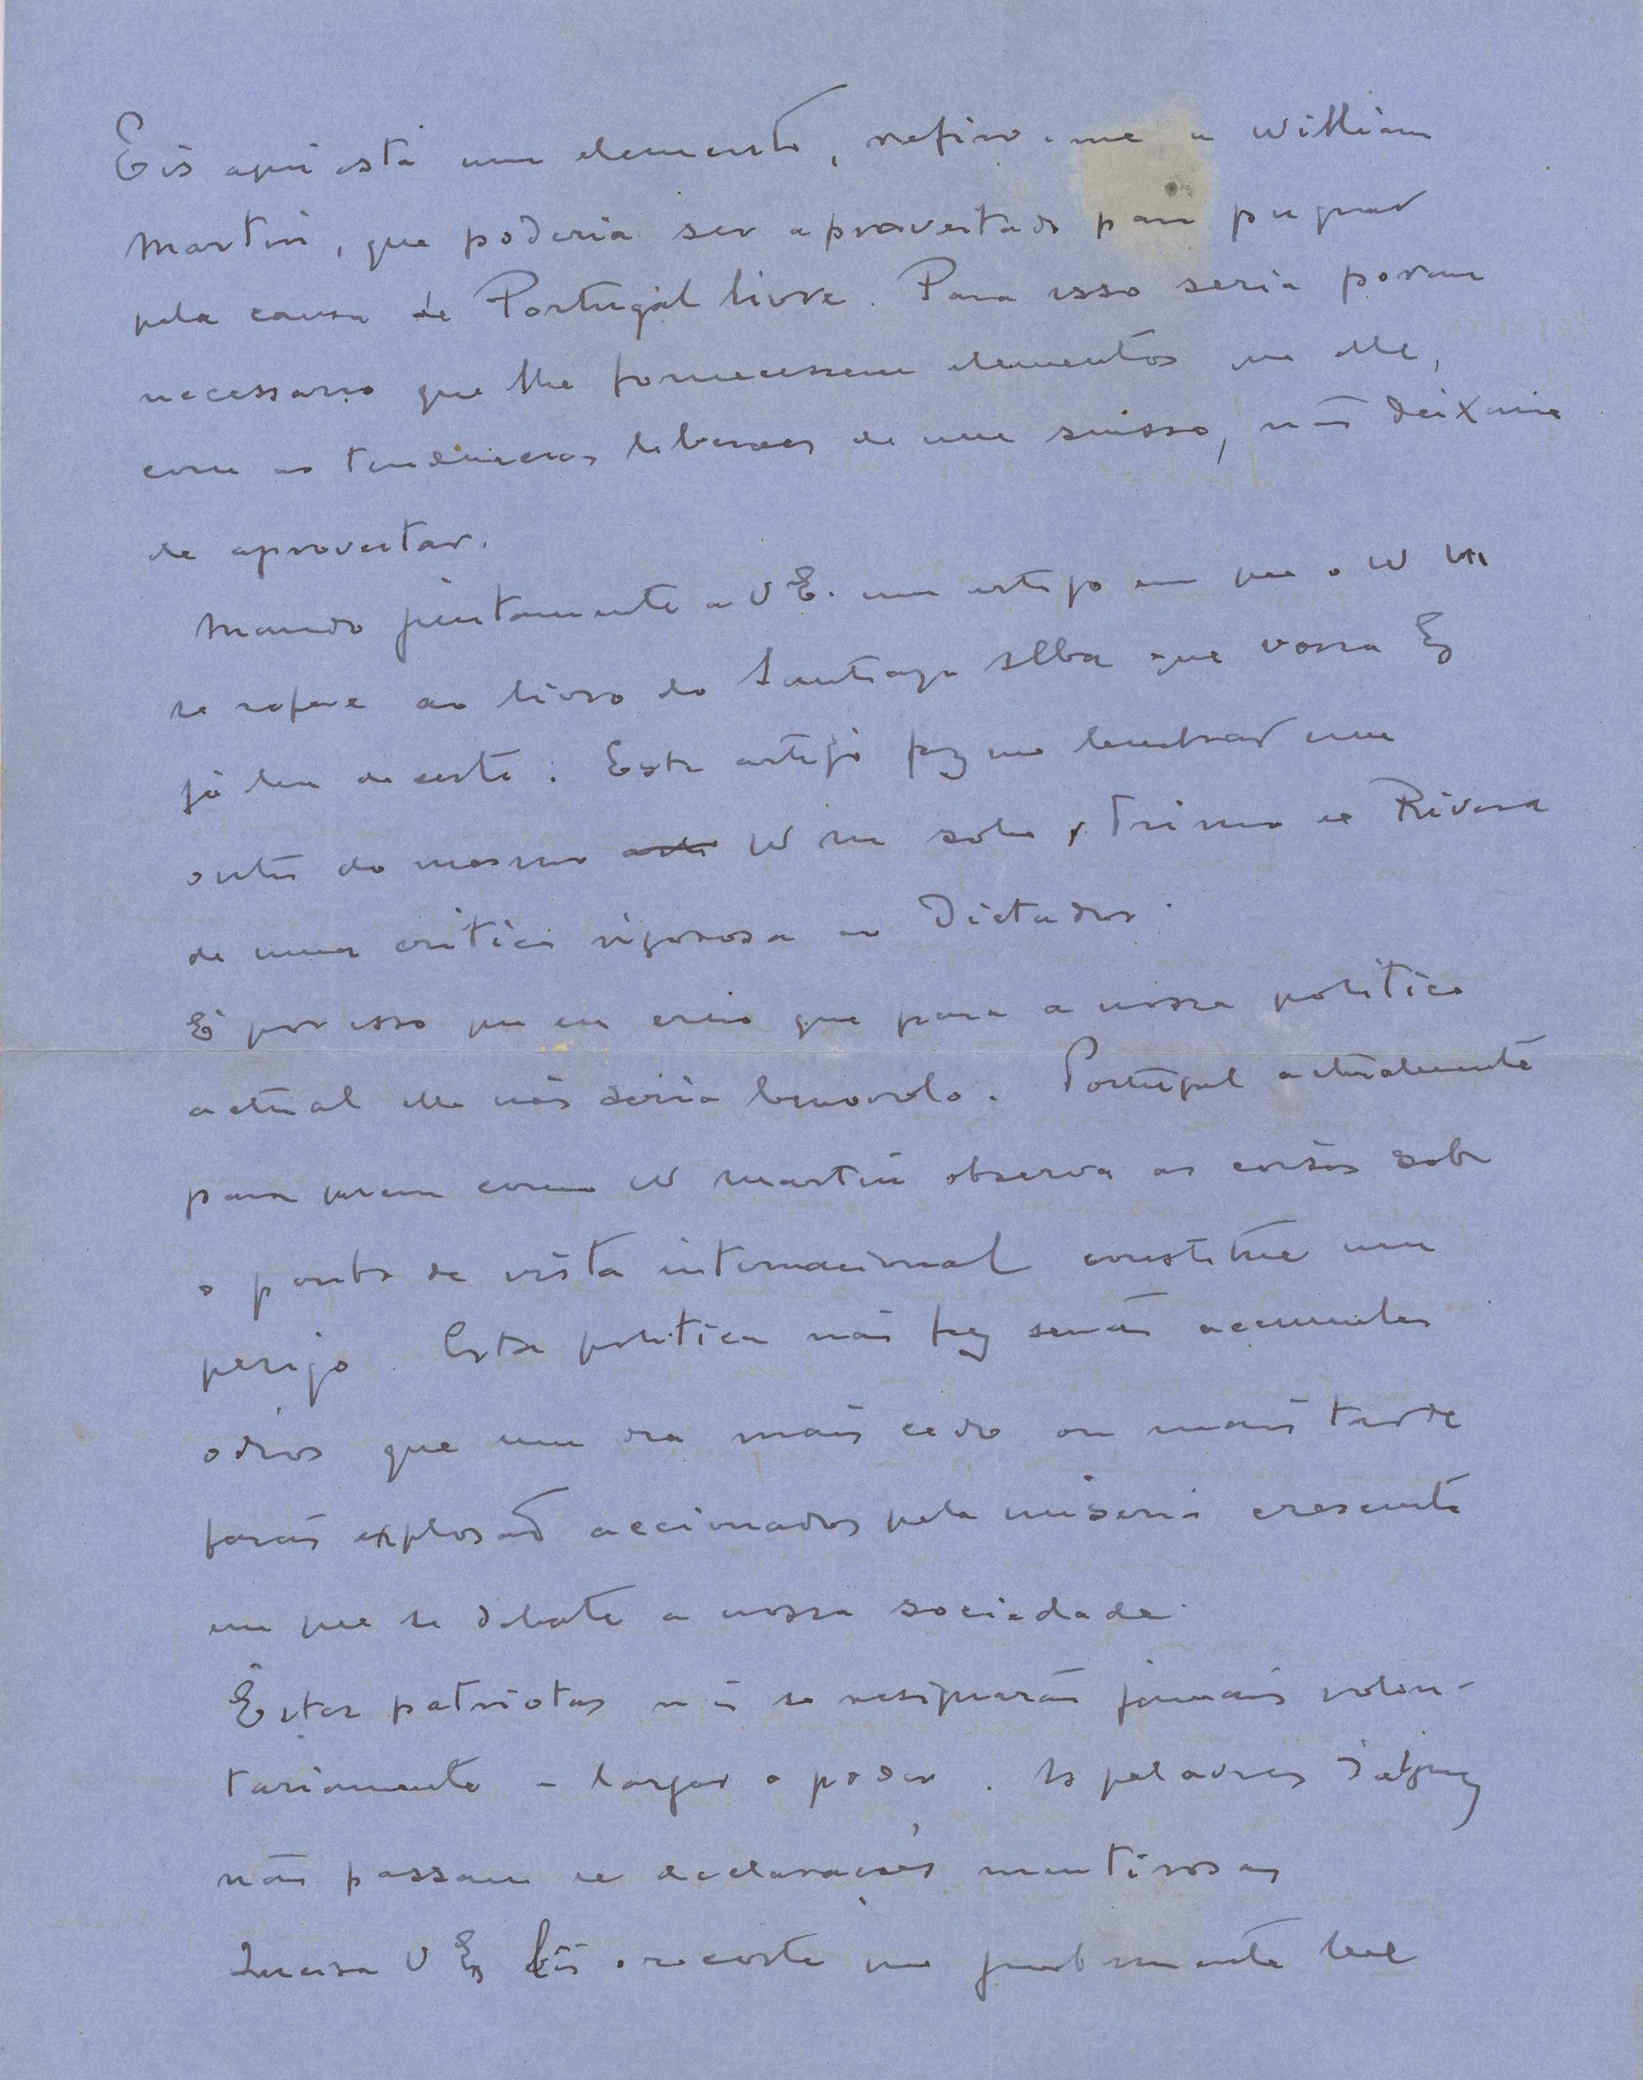 Eis aqui está um elemento, refiro-me a William
Martin, que poderia ser aproveitado para pugnar
pela causa de Portugal livre. Para isso seria porem
necessario que lhe fornecessem elementos que elle,
com as tendencias liberaes de um suisso, não deixaria
de aproveitar.
Mando juntamente a V E. um artigo em que o W M
se refere ao livro do Santiago Alba que vossa Ex
já leu decerto. Este artigo faz me lembrar um
outro do mesmo W M sobre Primo de Rivera
de uma critica rigorosa ao Dictador.
É por isso que eu creio que para a nossa politica
actual elle não seria benevolo. Portugal actualmente
para quem como W Martin observa as coisas sob
o ponto de vista internacional constitue um
perigo. Esta politica não fez senão accumular
odios que um dia mais cedo ou mais tarde
farão explosão accionados pela miseria crescente
em que se debate a nossa sociedade.
Estes patriotas não se resignarão jamais volun-
tariamente a largar o poder. As palavras
não passam de declarações mentirosas
Queira V Ex o recorte que juntamente lhe